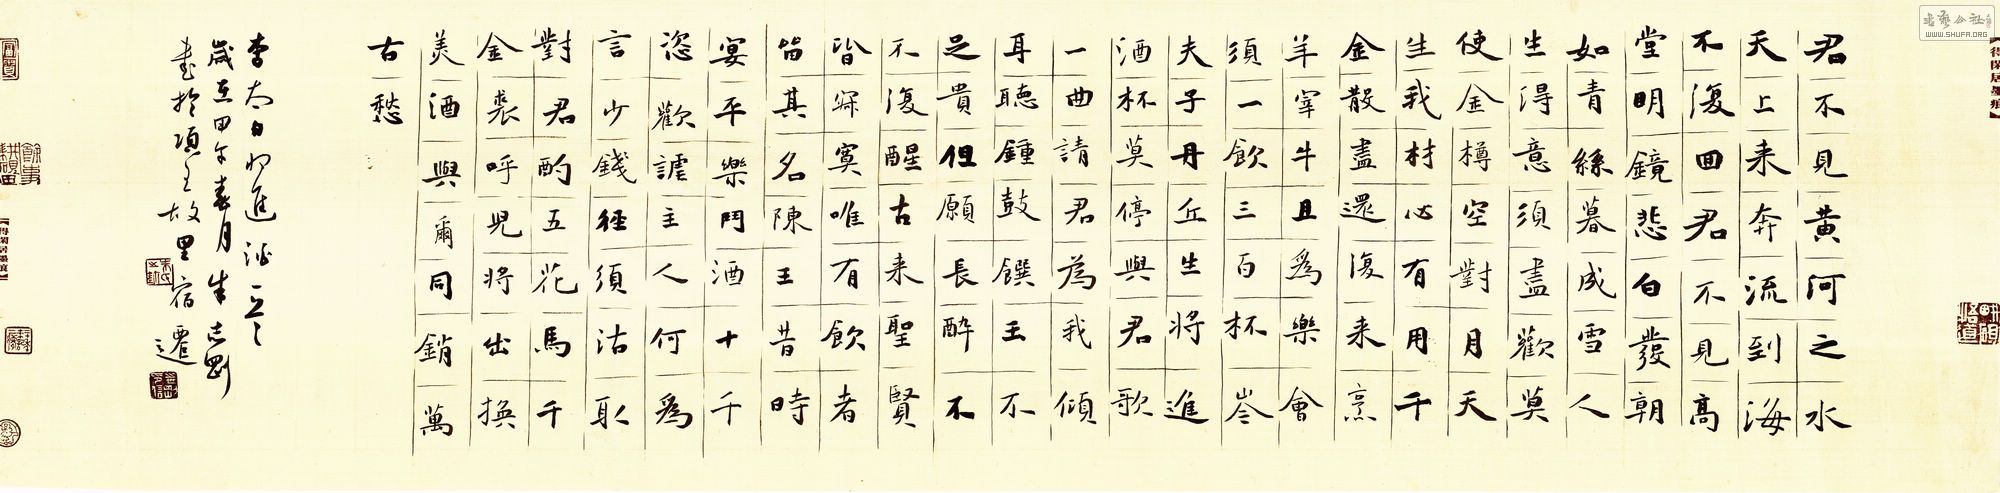 君不見黃河之水
天上来奔流到海
不復回君不見高
堂明鏡悲白發朝
如青絲暮成雪人
生得意須盡歡莫
使金樽空對月天
生我材必有用千
金散盡還復来烹
羊宰牛且爲樂會
須一飲三百杯岑
夫子丹丘生將進
酒杯莫停與君歌
一曲請君為我傾
耳聽鍾鼓饌玉不
足貴但願長醉不
不復醒古来聖賢
皆寂寞唯有飲者
留其名陳王昔時
宴平樂鬥酒十千
恣歡謔主人何爲
言少錢徑須沽取
對君酌五花馬千
金裘呼兒將出換
美酒與爾同銷萬
古愁
李太白将進酒
歲在甲午春月朱志剛
書於項王故里宿遷
得閑居墨痕
WWW.SHUFA.ORG